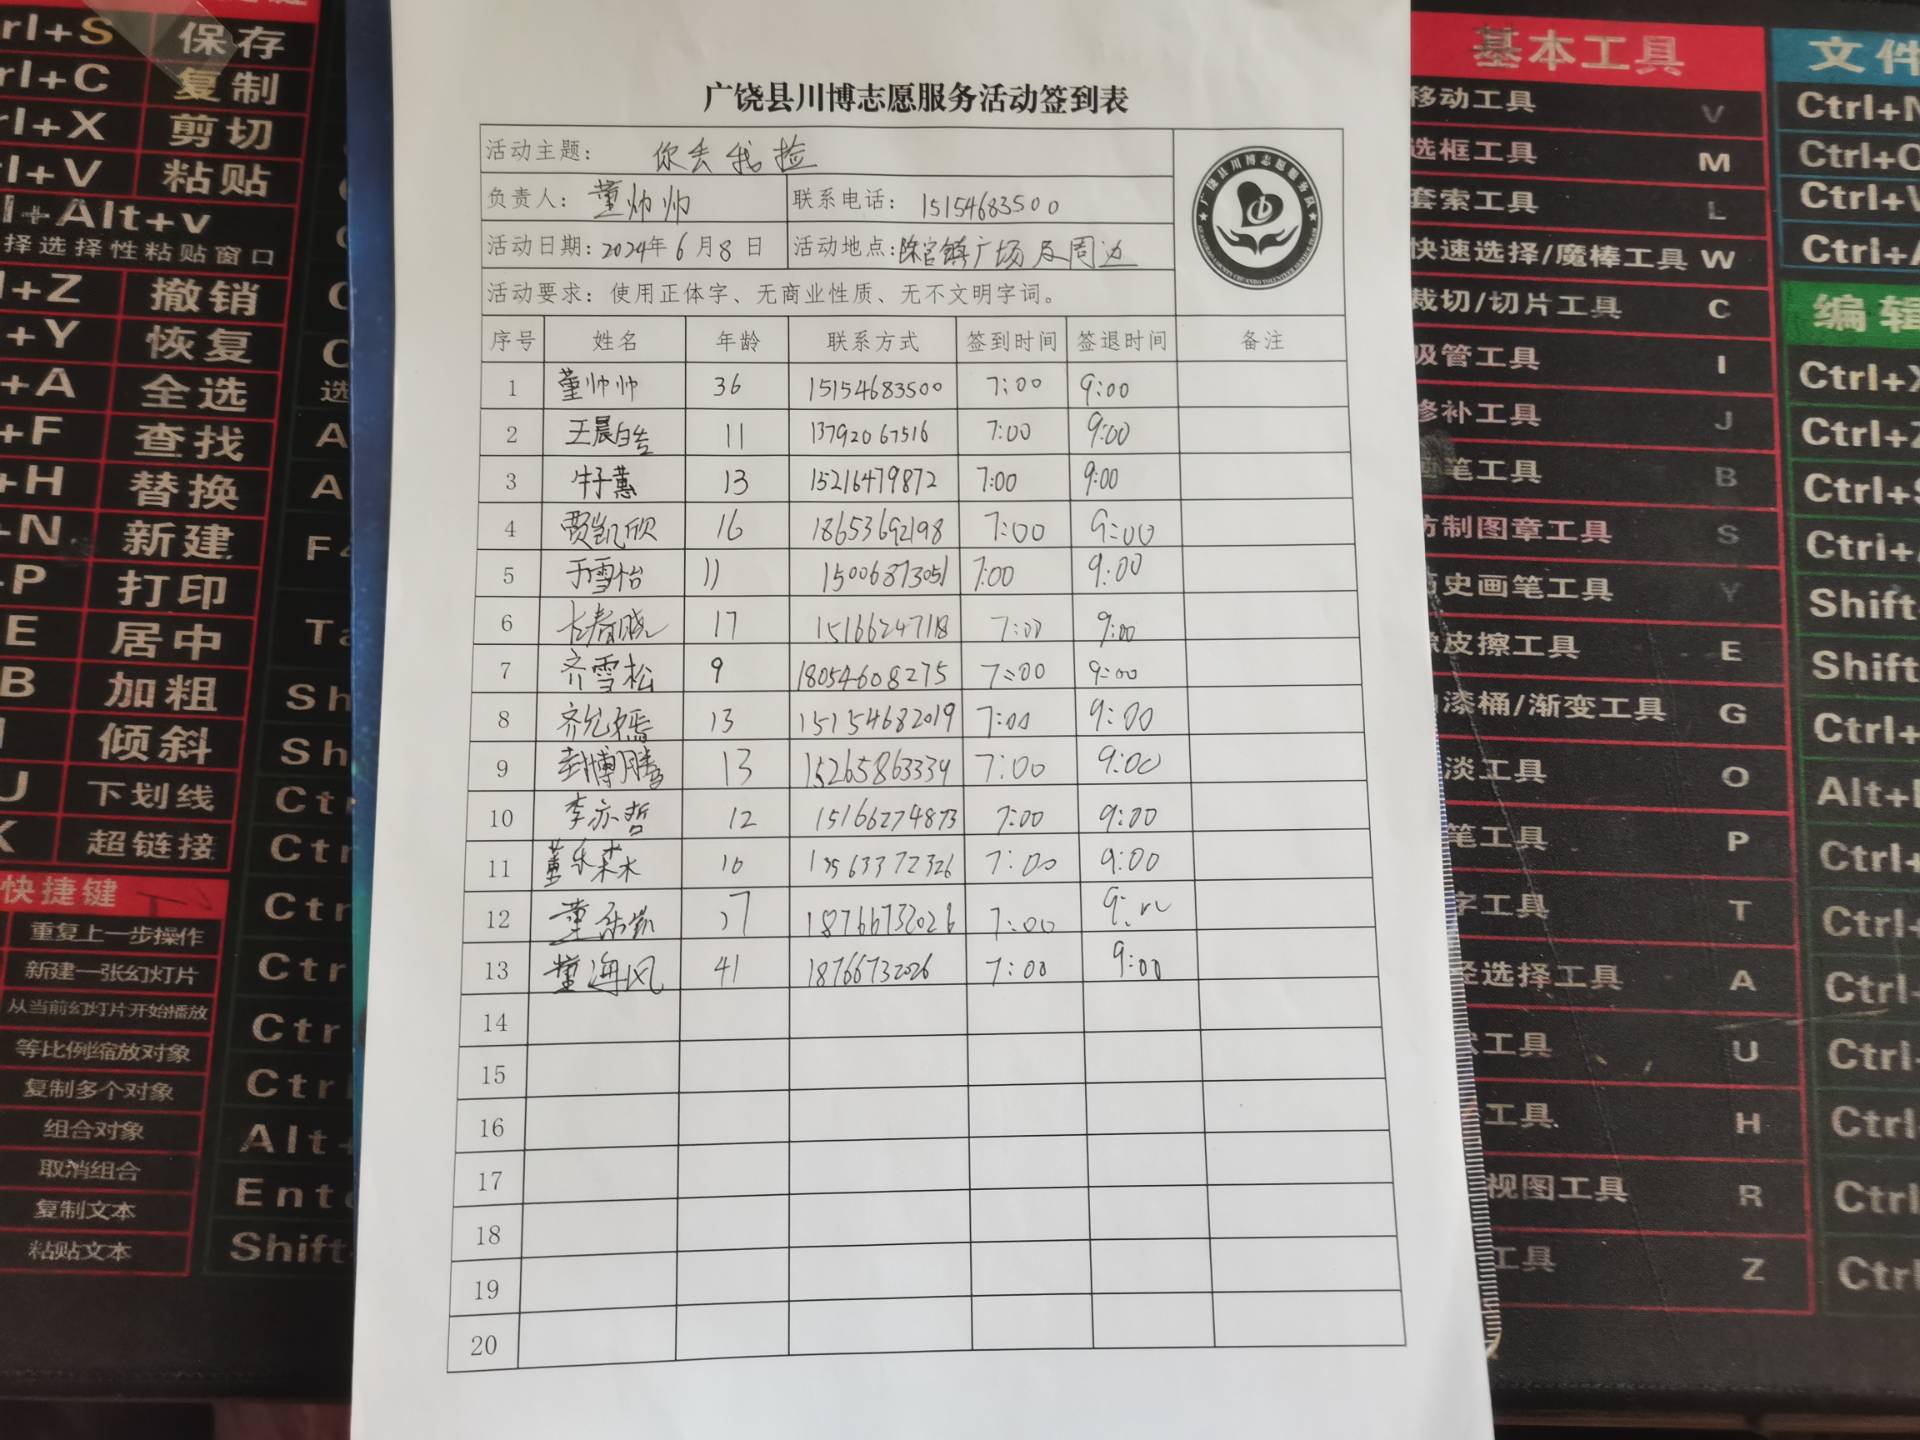 广饶县川博志愿服务活动签到表
活动主题: 你丢我捡
负责人: 董帅帅 联系电话: 15154683500
活动日期: 2024年6月8日 活动地点: 陈官镇广场及周边
活动要求: 使用正体字、无商业性质、无不文明字词。
广饶县川博志愿服务队
序号 姓名 年龄 联系方式 签到时间 签退时间 备注
1 董帅帅 36 15154683500 7:00 9:00
2 王晨皓 11 13792067516 7:00 9:00
3 牛子蕙 13 15216479872 7:00 9:00
4 贾凯欣 16 18653692198 7:00 9:00
5 于雪怡 11 15006873051 7:00 9:00
6 17 15166247118 7:00 9:00
7 齐雪松 9 18054608275 7:00 9:00
8 13 15154682019 7:00 9:00
9 封博腾 13 15265863339 7:00 9:00
10 李亦哲 12 15166274873 7:00 9:00
11 董乐森 10 13563372326 7:00 9:00
12 17 18766732026 7:00
13 董海风 41 18766732026 7:00 9:00
14
15
16
17
18
19
20
保存
复制
剪切
粘贴
择选择性粘贴窗口
撤销
恢复
全选
查找
替换
新建
打印
居中
加粗
倾斜
下划线
超链接
快捷键
重复上一步操作
新建一张幻灯片
从当前幻灯片开始播放
等比例缩放对象
复制多个对象
组合对象
取消组合
复制文本
粘贴文本
基本工具
移动工具 V
选框工具 M
套索工具 L
快速选择/魔棒工具 W
裁切/切片工具 C
吸管工具 I
修补工具 J
画笔工具 B
仿制图章工具 S
历史画笔工具 Y
橡皮擦工具 E
油漆桶/渐变工具 G
淡工具 O
笔工具 P
字工具 T
径选择工具 A
工具 U
工具 H
视图工具 R
工具 Z
文件
编辑